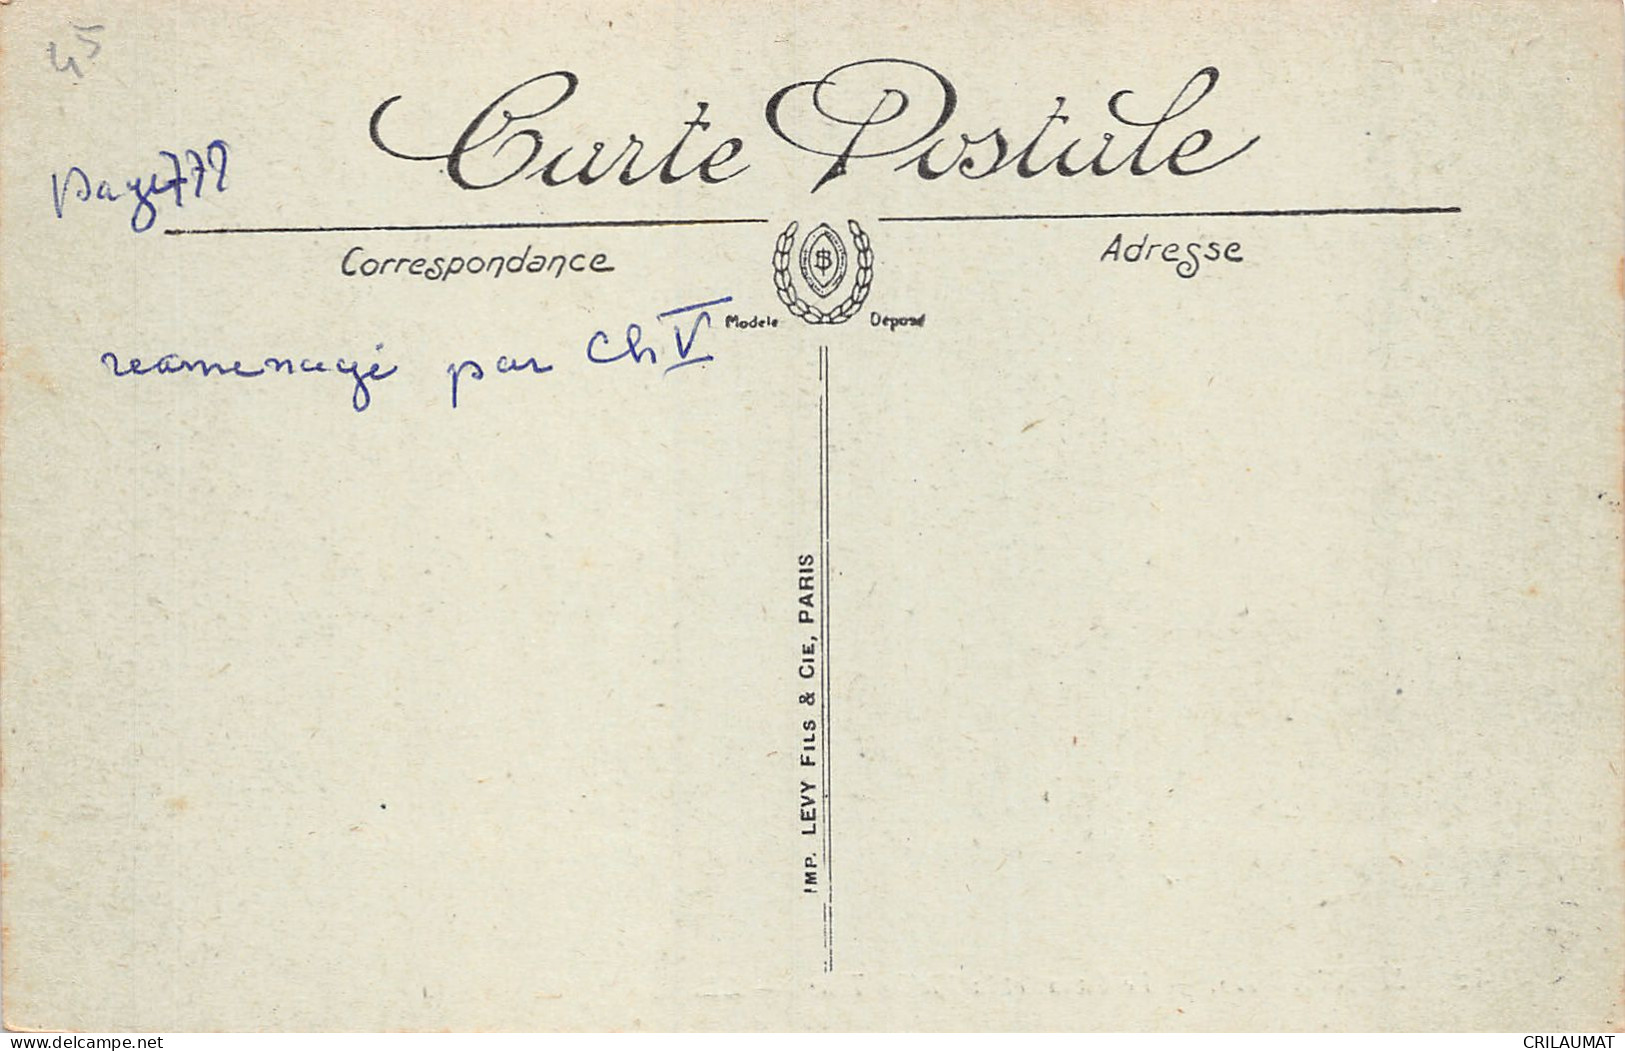 45
Carte Postale
page 778
Correspondance
Adresse
Modèle Déposé
reamenagé par Ch V
IMP. LEVY FILS & CIE, PARIS
delcampe.net
CRILAUMAT